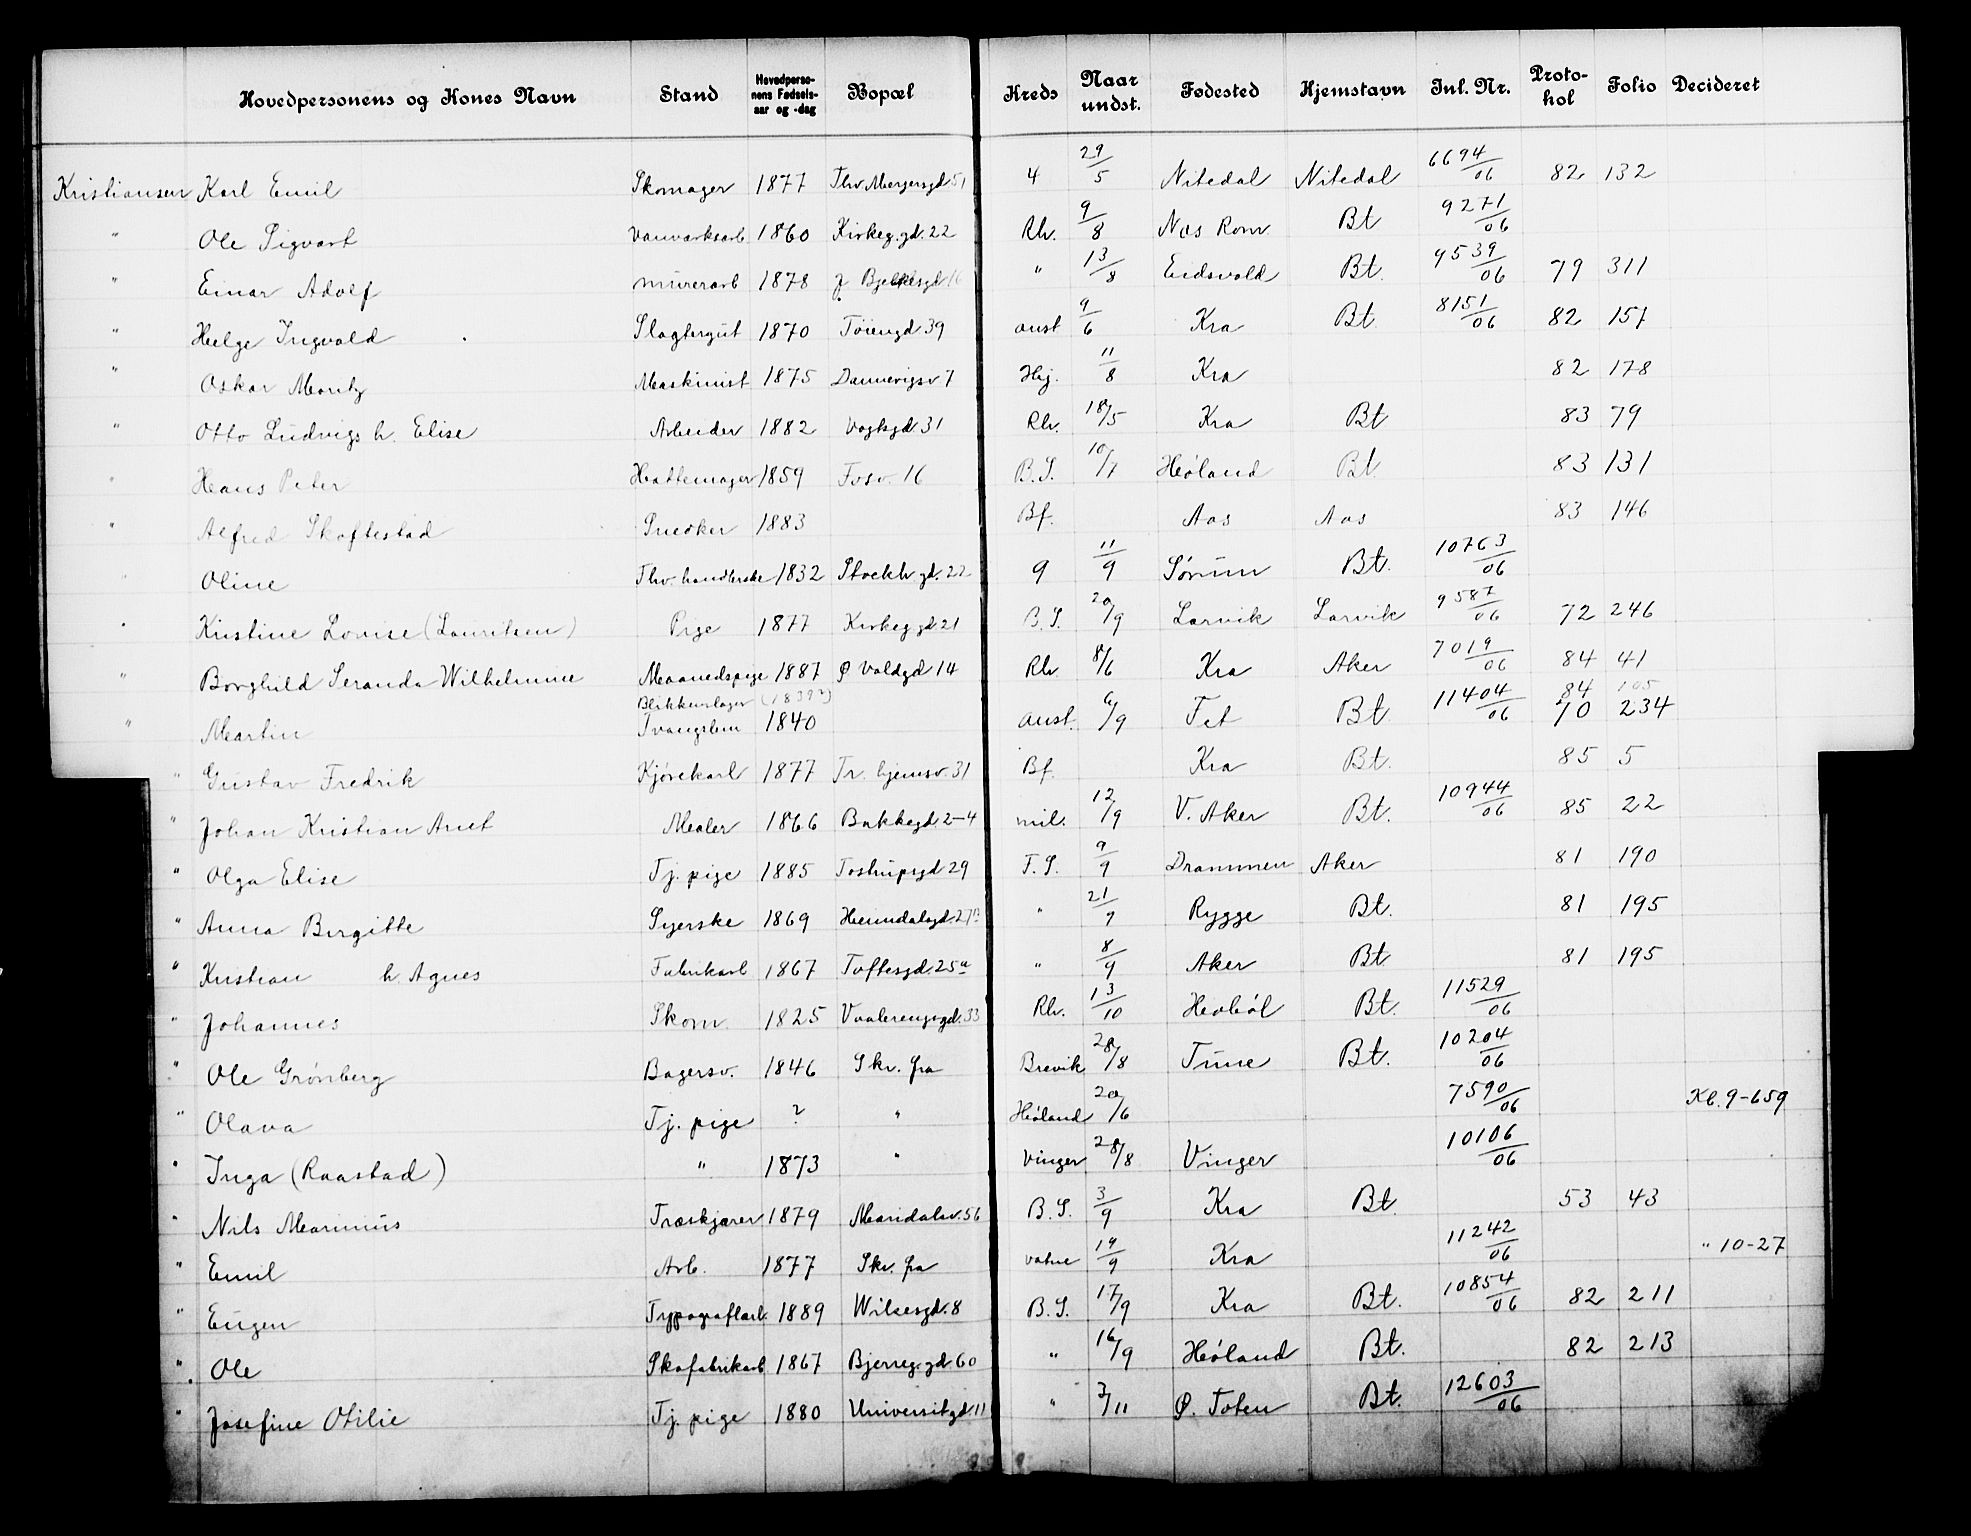 Hovedpersonens og Kones Navn Stand Hovedperso-nens Fødsels-aar og -dag Bopæl Kreds Naar undst. Fødested Hjemstavn Inl. Nr. Proto-kol Folio Decideret
Kristiansen Karl Emil Skomager 1877 Thv. Meyersgd 51 4 29/5 Nitedal Nitedal 6694/06 82 132
" Ole Sigvart Vanværksarb 1860 Kirkeg.gd. 22 Rh. 9/8 Næs Rom Bt 9271/06
" Einar Adolf murerarb 1878 J Bjelkesgd 16 " 13/8 Eidsvold Bt. 9539/06 79 311
" Helge Ingvald Slagtergut 1870 Tøiengd. 39 anst 9/6 Kra Bt 8151/06 82 157
" Oskar Moritz Maskinist 1875 Dannevigsv 7 Hj. 11/8 Kra 82 178
" Otto Ludvigs h. Elise Arbeider 1882 Vogtsgd 31 Rh. 18/5 Kra Bt 83 79
" Hans Peter Hattemager 1859 Fosv. 16 B.S. 10/7 Høland Bt. 83 131
" Alfred Skaftestad Snedker 1883 Bf. Aas Aas 83 146
" Oline Thv. handlerske 1832 Stockh gd. 22 9 11/9 Sørum Bt. 10763/06
" Kristine Lovise (Lauritsen) Pige 1877 Kirkeg.gd 21 B.S. 20/9 Larvik Larvik 9587/06 72 246
" Borghild Seranda Wilhelmine Maanedspige 1887 Ø Voldgd 14 Rh 8/6 Kra Aker 7019/06 84 41
" Martin Blikkenslager Tvangslem (1839?) 1840 anst. 6/9 Fet Bt 11404/06 84 105 70 234
" Gustav Fredrik Kjørekarl 1877 Tr. hjemsv. 31 Bf. Kra Bt. 85 5
" Johan Kristian Arnt Maler 1866 Bakkegd. 2-4 mil. 12/9 V. Aker Bt. 10944/06 85 22
" Olga Elise Tj. pige 1885 Tostrupsgd 29 F.S. 9/9 Drammen Aker 81 190
" Anna Birgitte Syerske 1869 Heimdalsgd. 27B " 21/7 Rygge Bt. 81 195
" Kristian h. Agnes Fabrikarb 1867 Toftesgd. 25a " 8/9 Aker Bt 81 195
" Johannes Skom. 1825 Vaalerengsgd. 33 Rh. 13/10 Hobøl Bt. 11529/06
" Ole Grønberg Bagersv. 1846 Skr. fra Brevik 28/8 Tune Bt. 10204/06
" Olava Tj. pige ? " Høland 20/6 7590/06 Kl. 9-659
" Inga (Raastad) " 1873 " Vinger 28/8 Vinger 10106/06
" Nils Marinius Træskjærer 1879 Maridalsv. 56 B.S. 3/9 Kra Bt 53 43
" Emil Arb. 1877 Skr. fra 19/9 Kra 11242/06 " 10-27
" Eugen Typograflærl. 1889 Wilsesgd. 8 B.S. 17/9 Kra Bt. 10854/06 82 211
" Ole Skofabrikarb 1867 Bjerreg.gd 60 " 16/9 Høland Bt. 82 213
" Josefine Otilie Tj. pige 1880 Universitgd. 11 " 3/11 Ø. Toten Bt. 12603/06